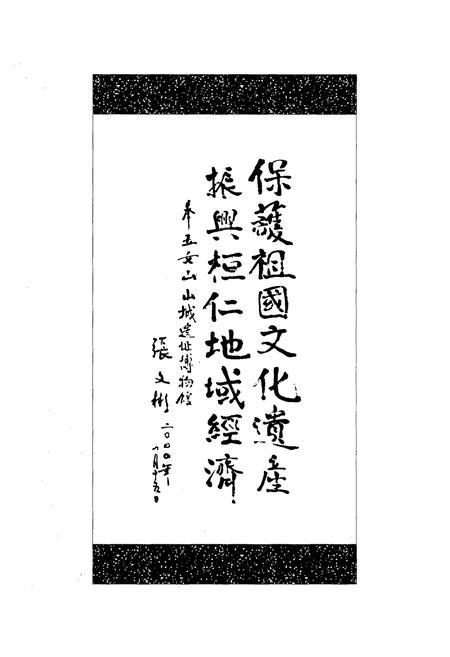 保護祖國文化遺產
振興桓仁地域經濟
五女山山城遺址博物館
張文彬 二〇〇〇年